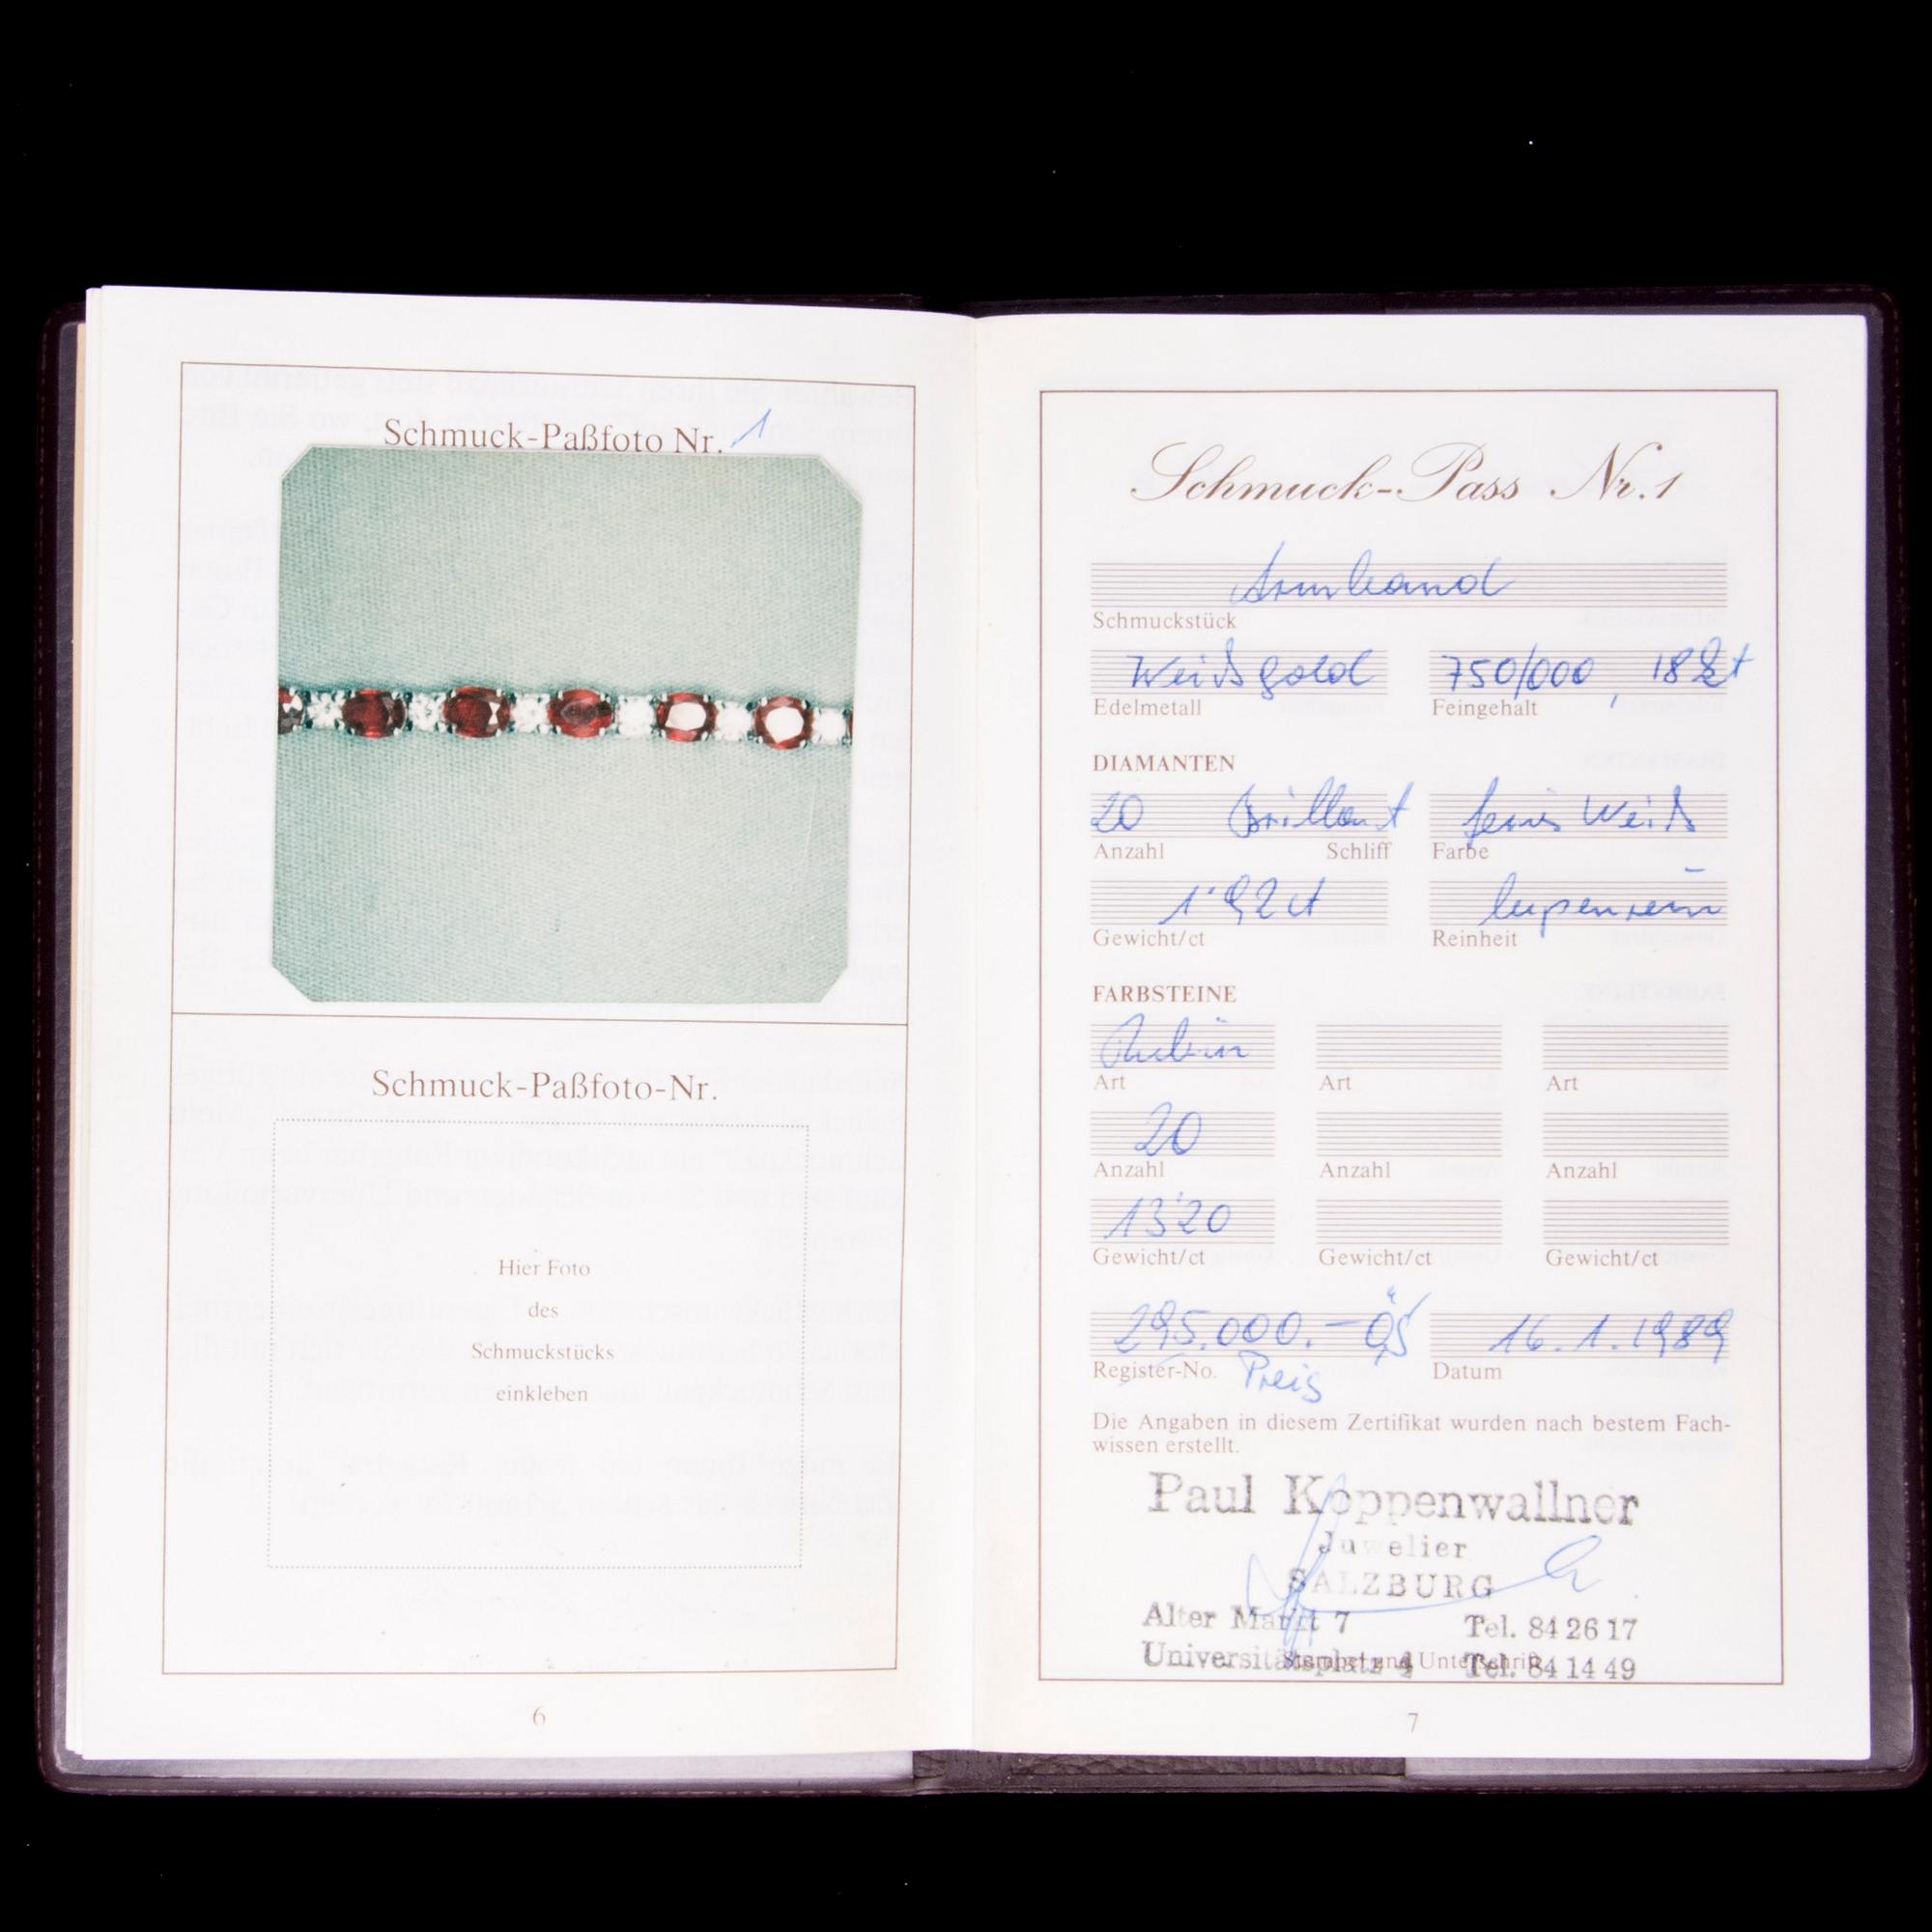 Schmuck-Paßfoto Nr. 1
Schmuck-Paßfoto-Nr.
Hier Foto
des
Schmuckstücks
einkleben
6
Schmuck-Pass Nr. 1
Armband
Schmuckstück
Weißgold 750/000, 18kt
Edelmetall Feingehalt
DIAMANTEN
20 Brillant feines Weiß
Anzahl Schliff Farbe
1'92 ct lupenrein
Gewicht/ct Reinheit
FARBSTEINE
Rubin
Art Art Art
20
Anzahl Anzahl Anzahl
13'20
Gewicht/ct Gewicht/ct Gewicht/ct
295.000.- ÖS 16.1.1989
Register-No. Preis Datum
Die Angaben in diesem Zertifikat wurden nach bestem Fach-
wissen erstellt.
Paul Koppenwallner
Juwelier
SALZBURG
Alter Markt 7 Tel. 84 26 17
Universitätsplatz 4 Tel. 84 14 49
Stempel und Unterschrift
7